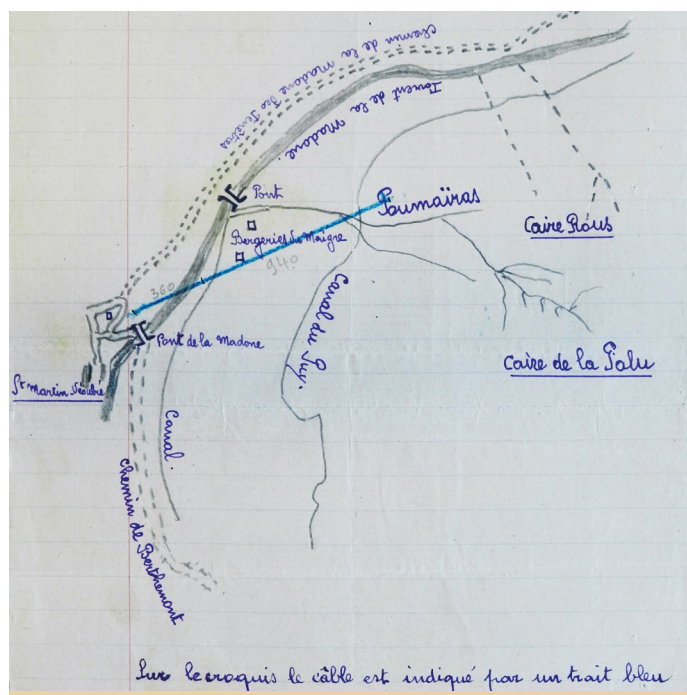 Chemin de la madone des Fenêtres
Torrent de la madone.
Pont
Poumaïras
Bergeries du Maigre
Caire Roùs
940
360
Pont de la Madone
Canal du Puy.
Caire de la Palu
St Martin Vésubie
Canal
Chemin de Berthemont
Sur le croquis le câble est indiqué par un trait bleu